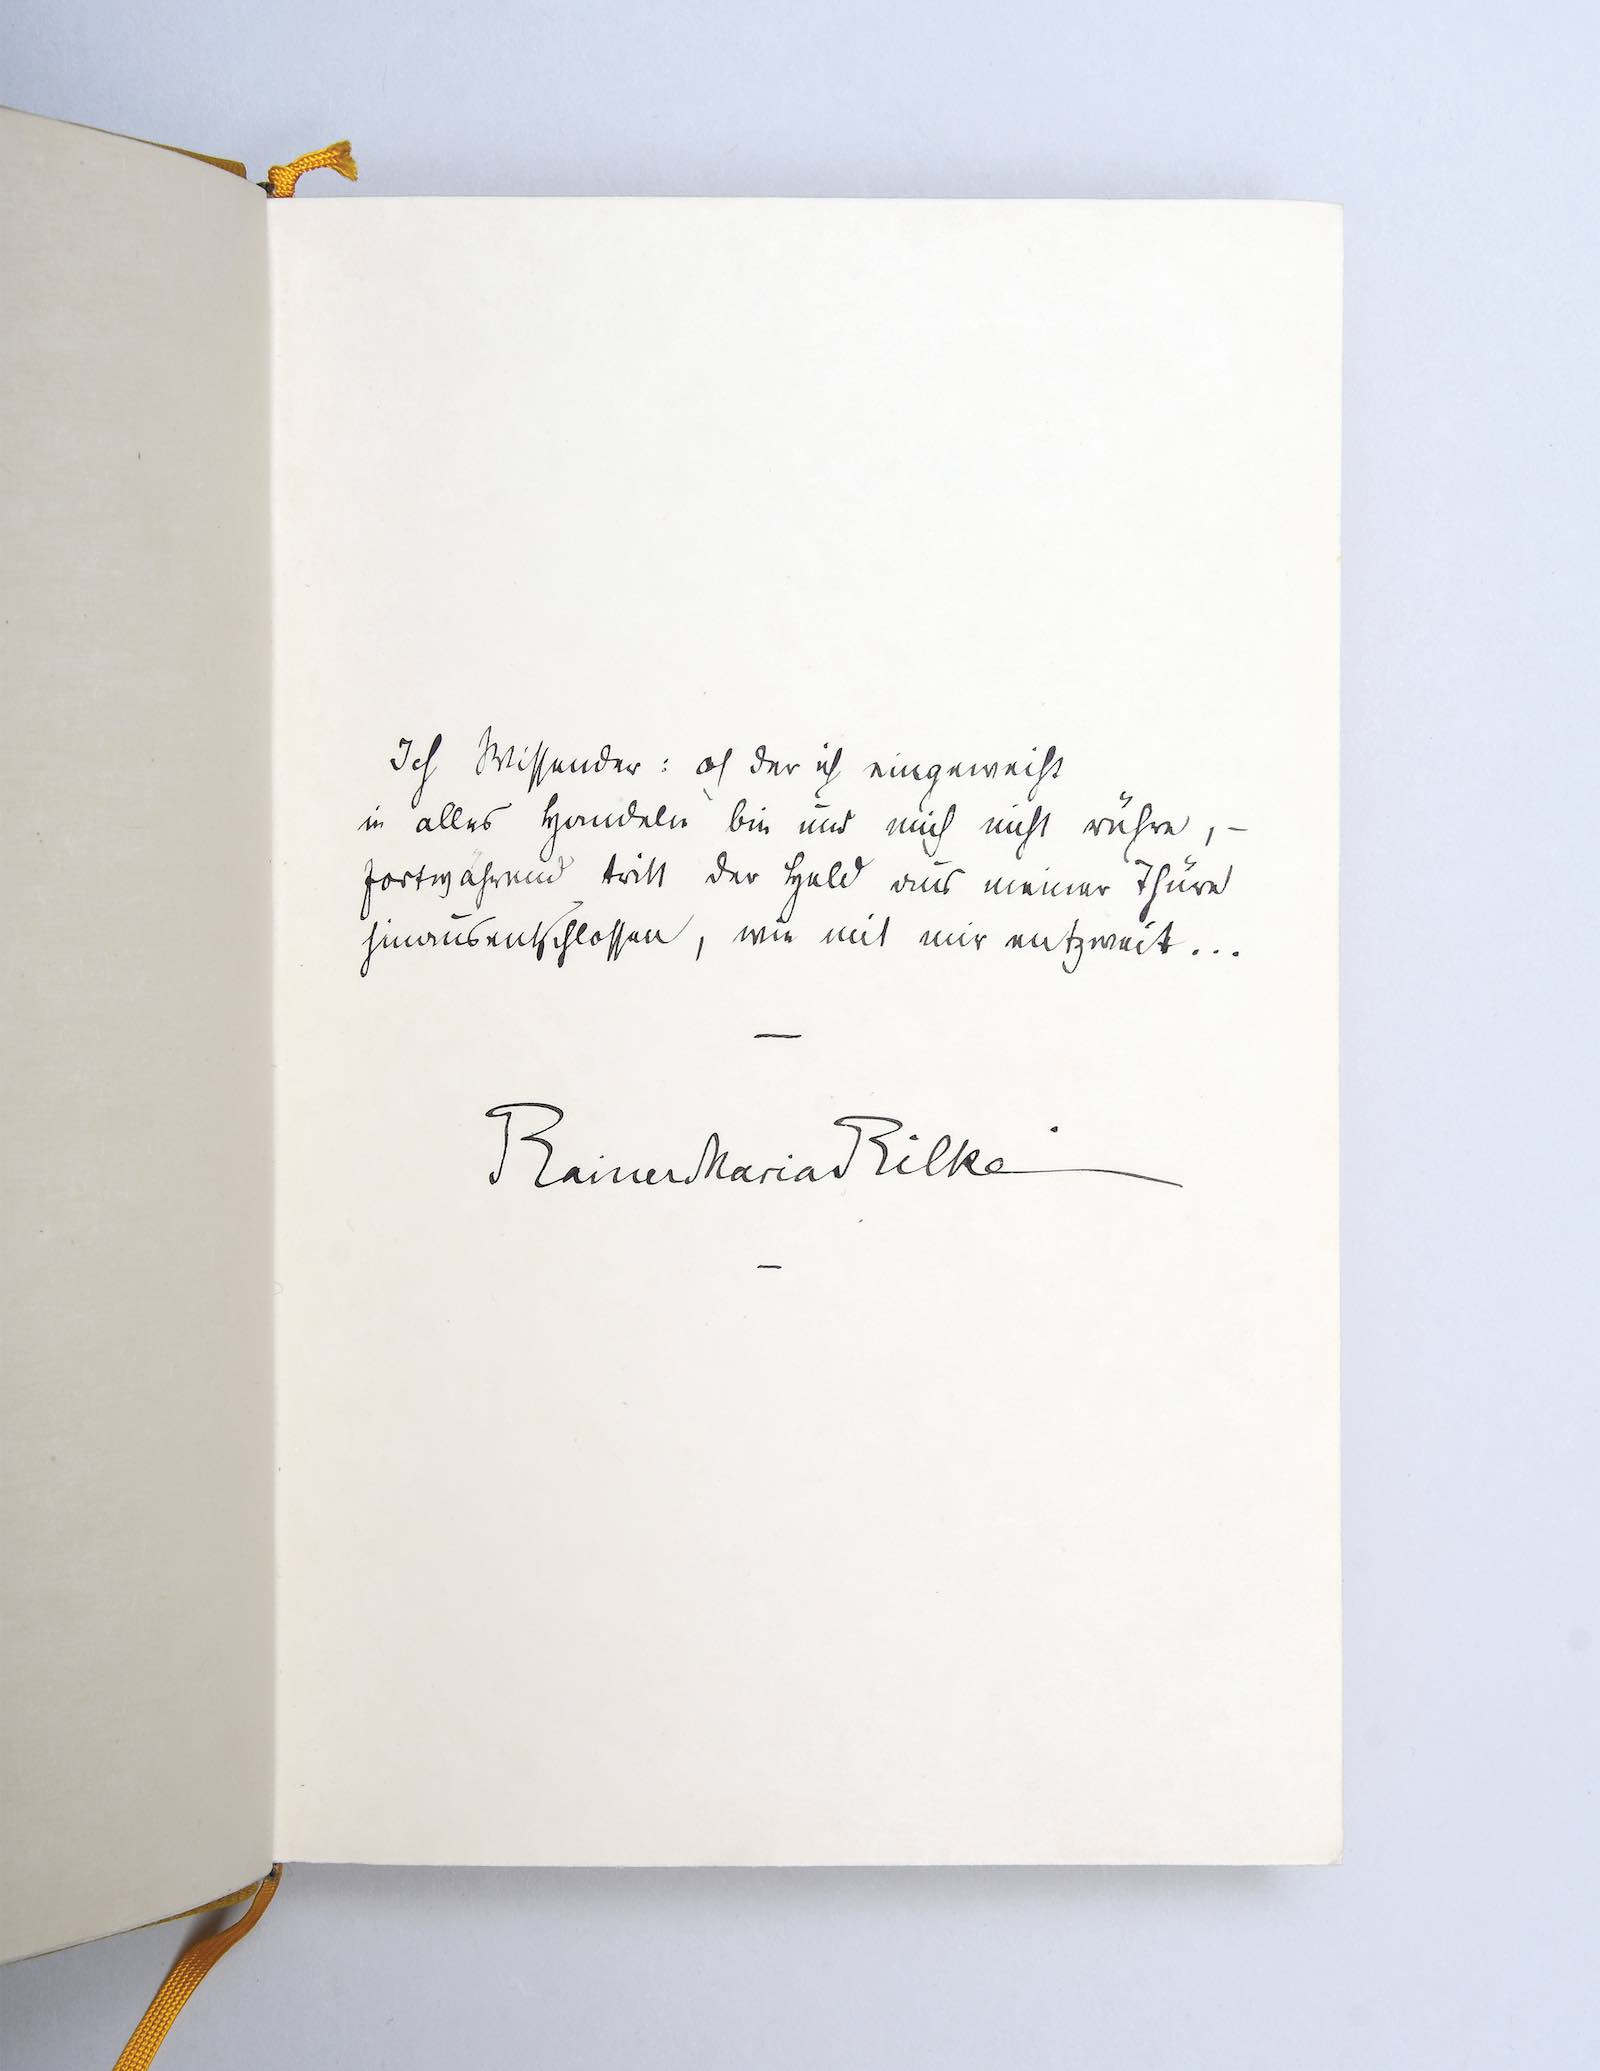 Ich Wissender: oh der ich eingeweiht
in alles Handeln bin und mich nicht rühre, –
fortwährend tritt der Held aus meiner Thüre
hinausentschlossen, wie mit mir entzweit...
—
Rainer Maria Rilke
–